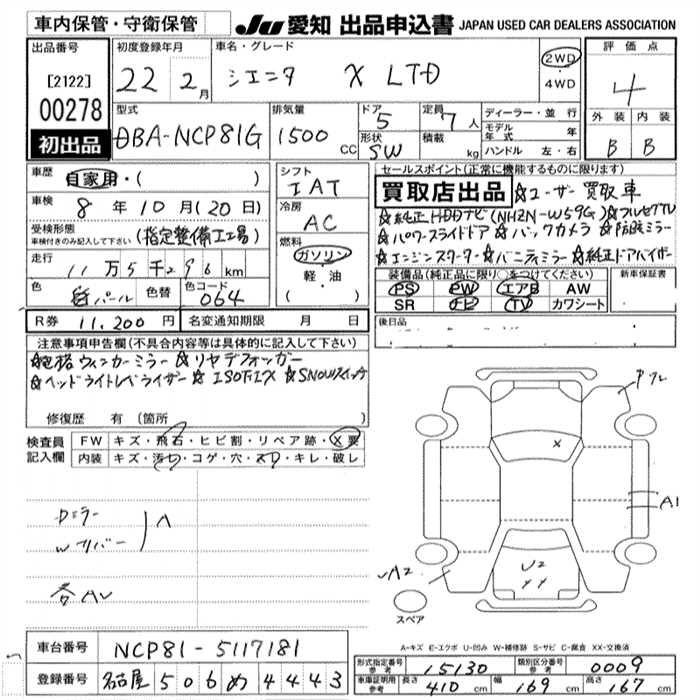 車内保管・守衛保管
JU 愛知 出品申込書 JAPAN USED CAR DEALERS ASSOCIATION
出品番号 初度登録年月 車名・グレード 評価点
[2122] 22 2月 シエンタ X LTD 2WD・4WD 4
00278 外装 内装
初出品 B B
型式 排気量 ドア 定員 ディーラー・並行
DBA-NCP81G 1500cc 5 7人 モデル年式 年
形状 積載 ハンドル 左・右
SW kg
車歴 自家用・( ) シフト IAT
セールスポイント(正常に機能するものに限ります)
買取店出品 ☆ユーザー買取車
車検 8年10月(20日) 冷房 AC
☆純正HDDナビ(NH2N-W59G)☆フルセグTV
受検形態 車検付きのみ記入して下さい (指定整備工場)
☆パワースライドドア ☆バックカメラ ☆防眩ミラー
燃料 ガソリン・軽・油( )
☆エンジンスターター ☆バニティミラー ☆純正ドアバイザー
走行 11万5千296km
装備品(純正品に限り○をつけてください) 新車保証書
色 パール 色替 色コード 064
PS PW エアB AW
SR ナビ TV カワシート
R券 11,200円 名変通知期限 月 日
後日品
注意事項申告欄(不具合内容等は具体的に記入して下さい)
ウィンカーミラー ☆リヤデフォッガー
☆ヘッドライトレベライザー ☆ISOFIX ☆SNOWスイッチ
修復歴 有(箇所 )
検査員記入欄 FW キズ・飛石・ヒビ割・リペア跡・X要
内装 キズ・汚れ・コゲ・穴・スレ・キレ・破レ
X
A1
Dミラー
Wリバー
A
U2
A2
スペア
A-キズ E-エクボ U-凹み W-補修跡 S-サビ C-腐食 XX-交換済
車台番号 NCP81-5117181
形式指定番号 参考 15130 類別区分番号 参考 0009
登録番号 名古屋 506 め 4443
車庫証明用 参考 長さ 410cm 幅 169cm 高さ 167cm